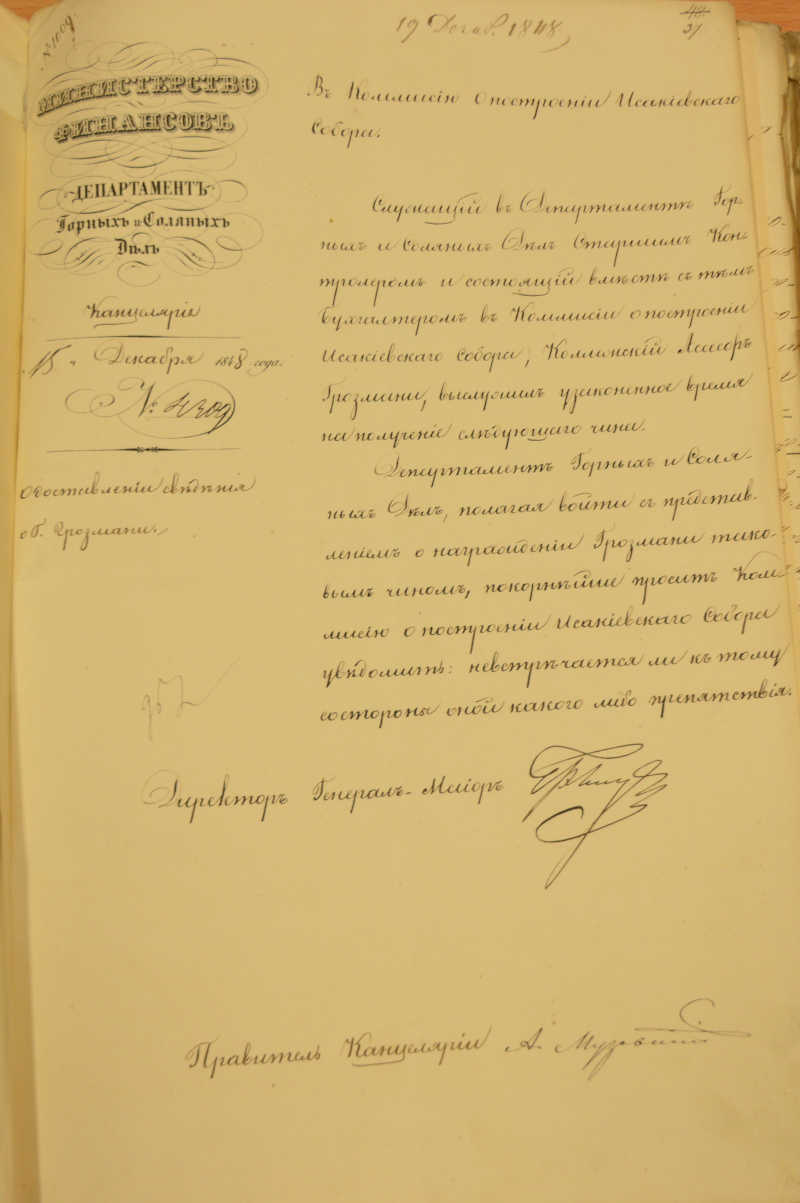 19 Декаб. 1848
37
№ 1009
МИНИСТЕРСТВО
ФИНАНСОВЪ
ДЕПАРТАМЕНТЪ
Горныхъ и Соляныхъ
Дѣлъ
Канцелярія
15 Декабря 1848 года.
О доставленіи свѣдѣнія
о Г. Грозмани.
Въ Коммисію о построеніи Исакіевскаго
Собора.
Служащій въ Департаментѣ Гор-
ныхъ и Соляныхъ Дѣлъ Старшимъ Кон-
тролеромъ и состоящій вмѣстѣ съ тѣмъ
Бухгалтеромъ въ Коммисіи о построеніи
Исакіевскаго Собора, Коллежскій Асесоръ
Грозмани, выслужилъ узаконенное время
на полученіе слѣдующаго чина.
Департаментъ Горныхъ и Соля-
ныхъ Дѣлъ, полагая войти съ представ-
леніемъ о награжденіи Грозмани тако-
вымъ чиномъ, покорнѣйше проситъ Ком-
мисію о построеніи Исакіевскаго Собора
увѣдомить: невстрѣчается ли къ тому
со стороны оной какого либо препятствія.
Директоръ Генералъ-Маіоръ
Правитель Канцеляріи А.